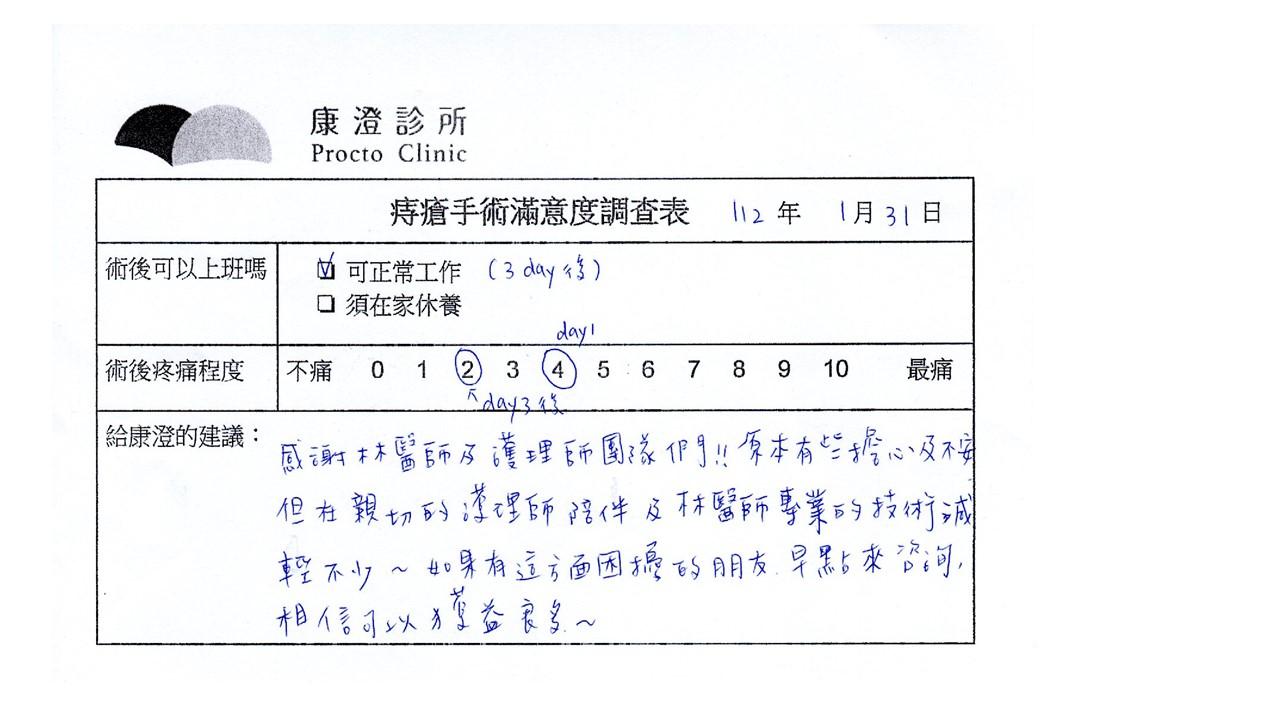 康澄診所
Procto Clinic
痔瘡手術滿意度調查表 112 年 1 月 31 日
術後可以上班嗎 ☑ 可正常工作 (3 day 後)
☐ 須在家休養
day1
術後疼痛程度 不痛 0 1 2 3 4 5 6 7 8 9 10 最痛
↖ day3 後
給康澄的建議：
感謝林醫師及護理師團隊們!! 原本有些擔心及不安
但在親切的護理師陪伴及林醫師專業的技術減
輕不少～如果有這方面困擾的朋友.早點來諮詢,
相信可以獲益良多.～